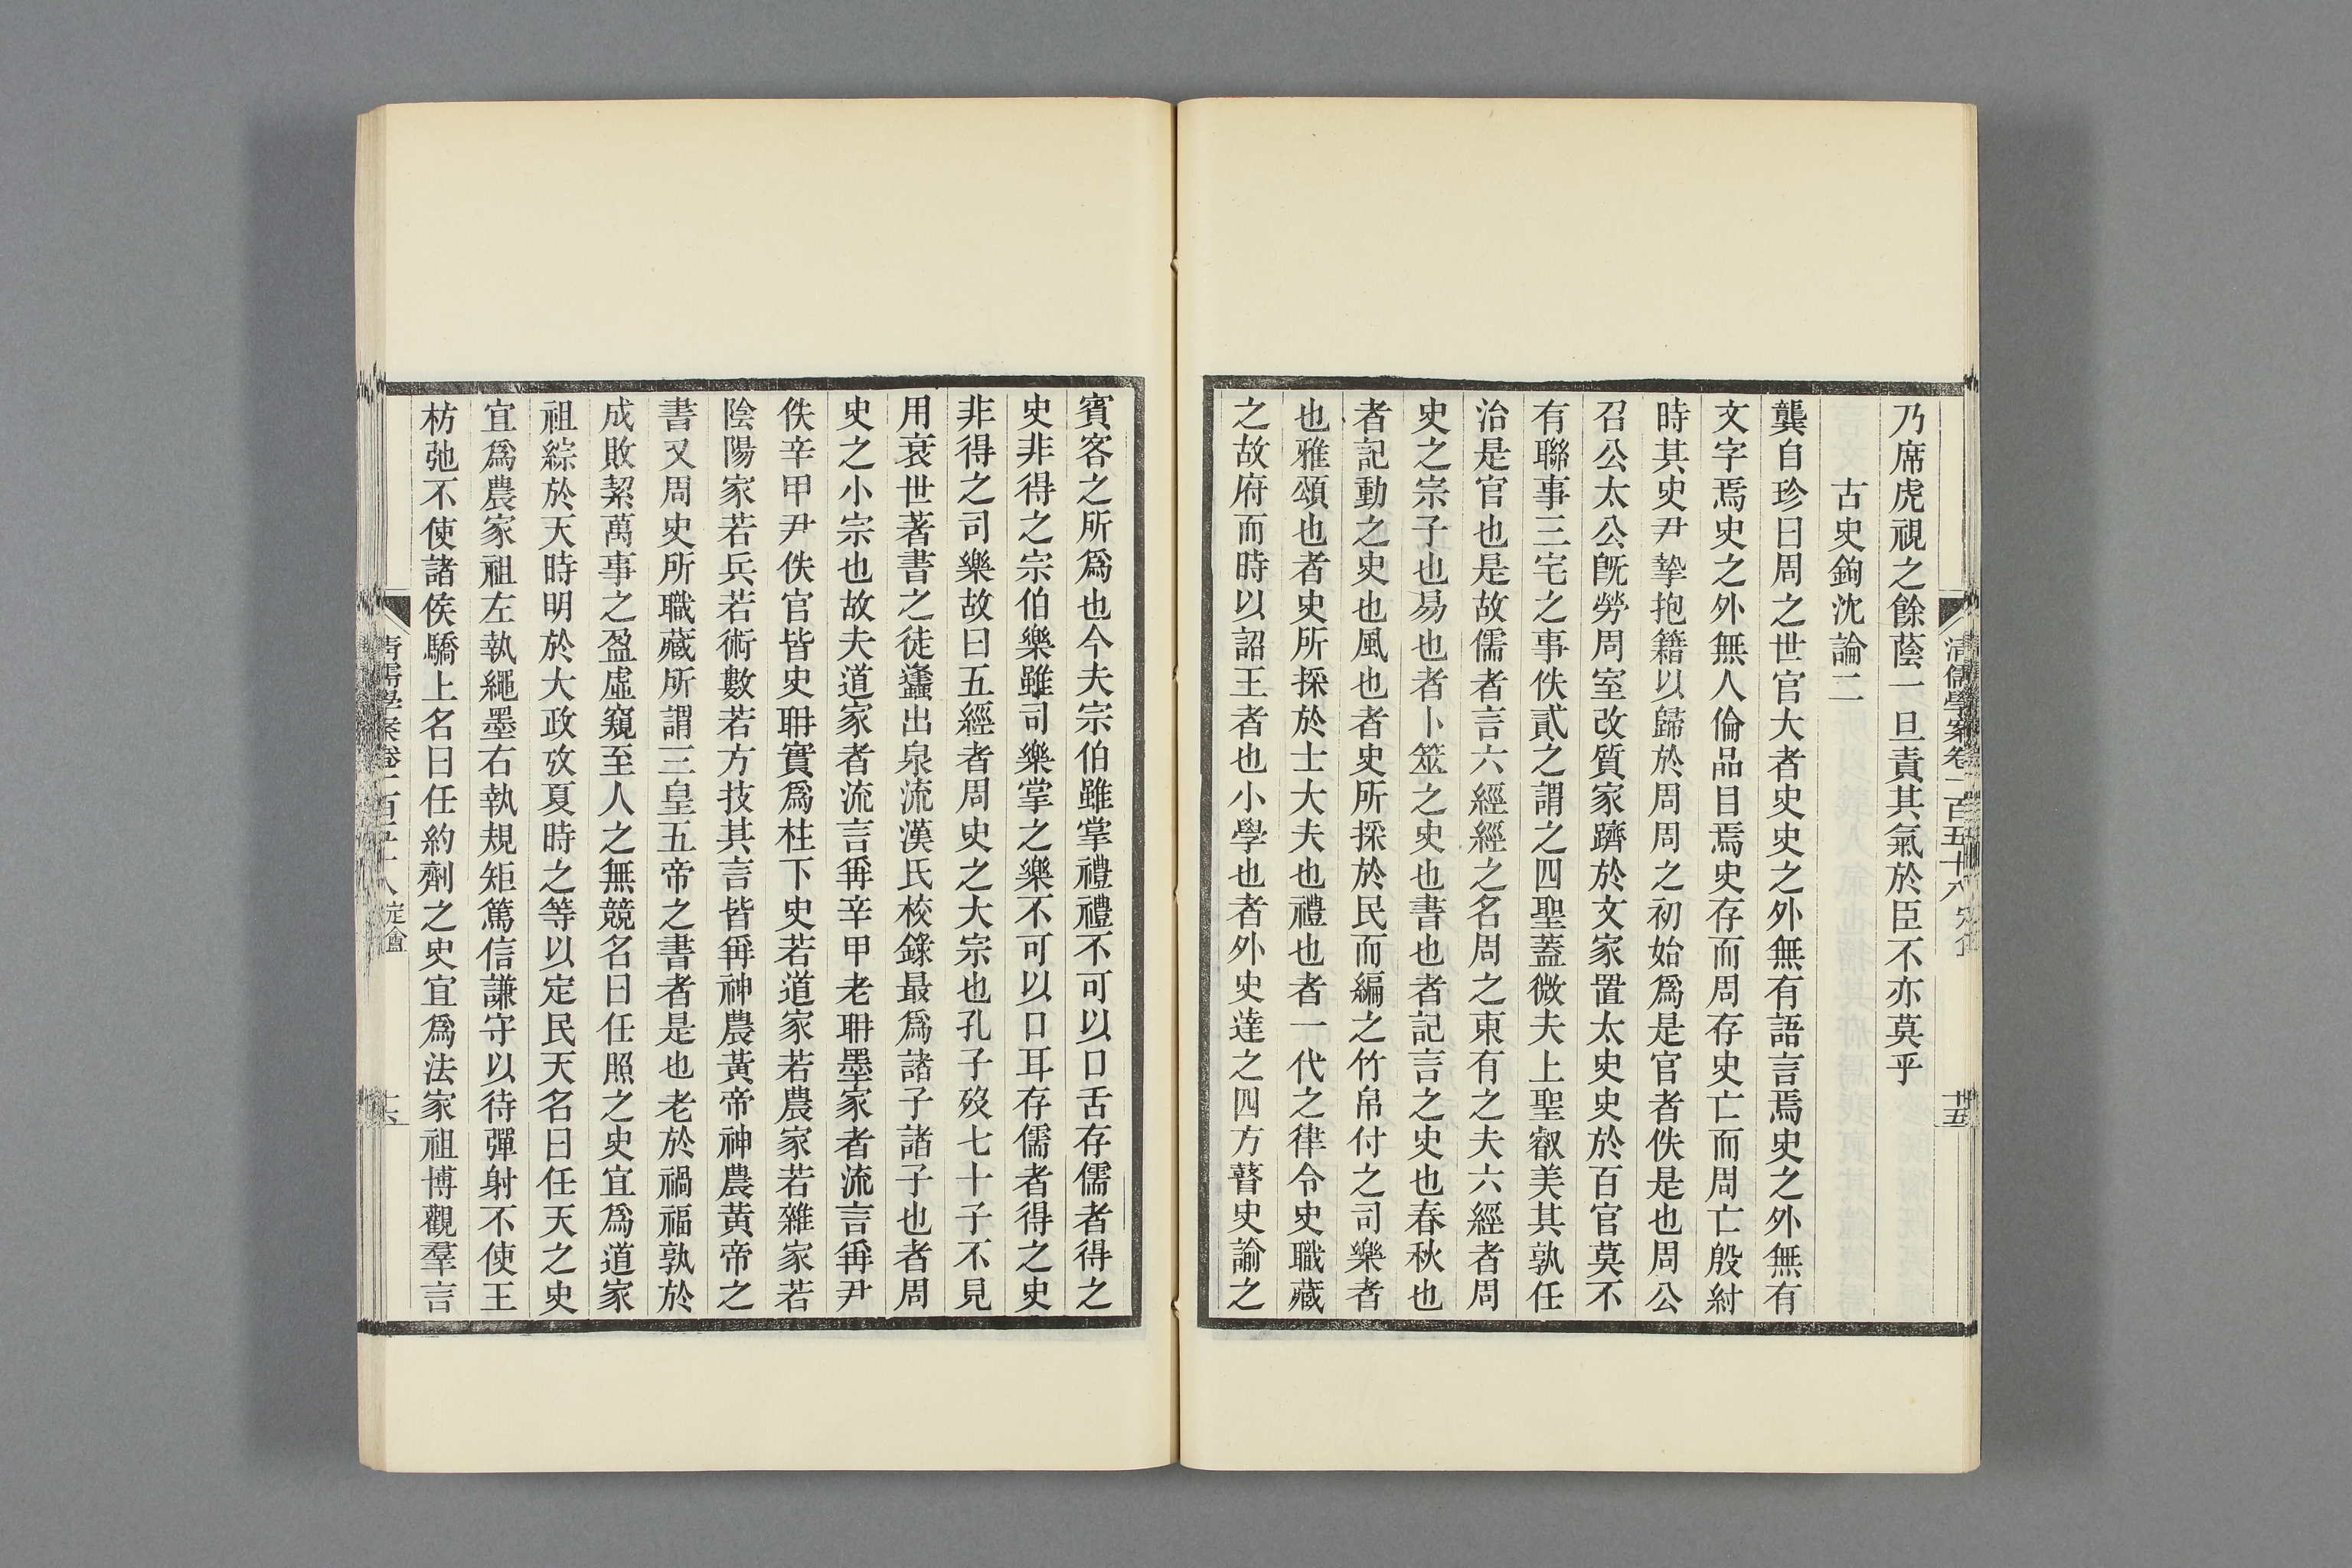 清儒學案卷一百五十八
十五
乃席虎視之餘蔭一旦責其氣於臣不亦莫乎
古史鉤沈論二
龔自珍曰周之世官大者史史之外無有語言焉史之外無有
文字焉史之外無人倫品目焉史存而周存史亡而周亡殷紂
時其史尹摯抱籍以歸於周周之初始爲是官者佚是也周公
召公太公旣勞周室改質家躋於文家置太史史於百官莫不
有聯事三宅之事佚貳之謂之四聖蓋微夫上聖叡美其孰任
治是官也是故儒者言六經經之名周之東有之夫六經者周
史之宗子也易也者卜筮之史也書也者記言之史也春秋也
者記動之史也風也者史所採於民而編之竹帛付之司樂者
也雅頌也者史所採於士大夫也禮也者一代之律令史職藏
之故府而時以詔王者也小學也者外史達之四方瞽史諭之
賓客之所爲也今夫宗伯雖掌禮禮不可以口舌存儒者得之
史非得之宗伯樂雖司樂掌之樂不可以口耳存儒者得之史
非得之司樂故曰五經者周史之大宗也孔子歿七十子不見
用衰世著書之徒蠭出泉流漢氏校錄最爲諸子諸子也者周
史之小宗也故夫道家者流言稱辛甲老耼墨家者流言稱尹
佚辛甲尹佚官皆史耼實爲柱下史若道家若農家若雜家若
陰陽家若兵若術數若方技其言皆稱神農黃帝神農黃帝之
書又周史所職藏所謂三皇五帝之書者是也老於禍福孰於
成敗絜萬事之盈虛窺至人之無競名曰任照之史宜爲道家
祖綜於天時明於大政攷夏時之等以定民天名曰任天之史
宜爲農家祖左執繩墨右執規矩篤信謙守以待彈射不使王
枋弛不使諸侯驕上名曰任約劑之史宜爲法家祖博觀羣言
清儒學案卷一百五十八 定盦
十六